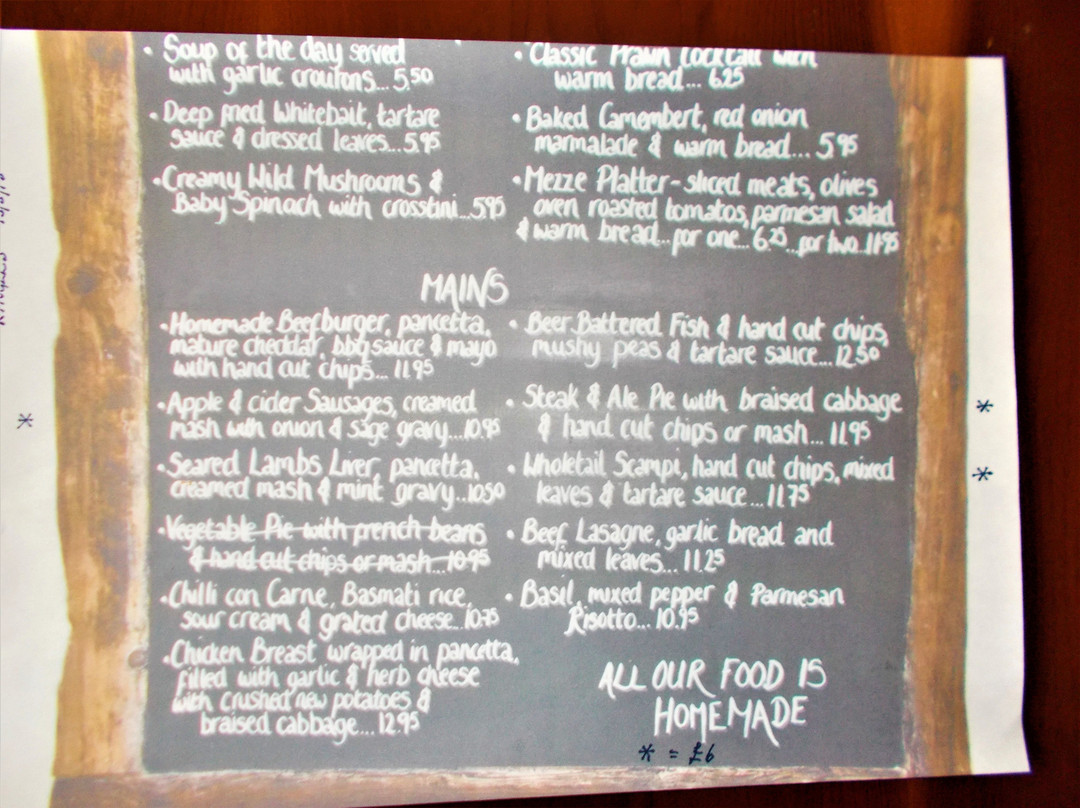 · Soup of the day served
with garlic croutons... 5.50
· Deep fried Whitebait, tartare
sauce & dressed leaves... 5.95
· Creamy Wild Mushrooms &
Baby Spinach with crosstini... 5.95
· Classic Prawn Cocktail with
warm bread... 6.25
· Baked Camembert, red onion
marmalade & warm bread.... 5.95
· Mezze Platter - sliced meats, olives
oven roasted tomatos, parmesan salad
& warm bread.. for one... 6.25 ..for two. 11.95
MAINS
· Homemade Beefburger, pancetta,
mature cheddar, bbq sauce & mayo
with hand cut chips... 11.95
· Apple & cider Sausages, creamed
mash with onion & sage gravy...10.95
· Seared Lambs Liver, pancetta,
creamed mash & mint gravy..10.50
· Vegetable Pie with french beans
& hand cut chips or mash...10.95
· Chilli con Carne, Basmati rice,
sour cream & grated cheese..10.75
· Chicken Breast wrapped in pancetta,
filled with garlic & herb cheese
with crushed new potatoes &
braised cabbage... 12.95
· Beer Battered Fish & hand cut chips,
mushy peas & tartare sauce... 12.50
· Steak & Ale Pie with braised cabbage *
& hand cut chips or mash... 11.95
· Wholetail Scampi, hand cut chips, mixed *
leaves & tartare sauce ... 11.75
· Beef Lasagne, garlic bread and
mixed leaves... 11.25
· Basil, mixed pepper & Parmesan
Risotto... 10.95
ALL OUR FOOD IS
HOMEMADE
* = £6
*